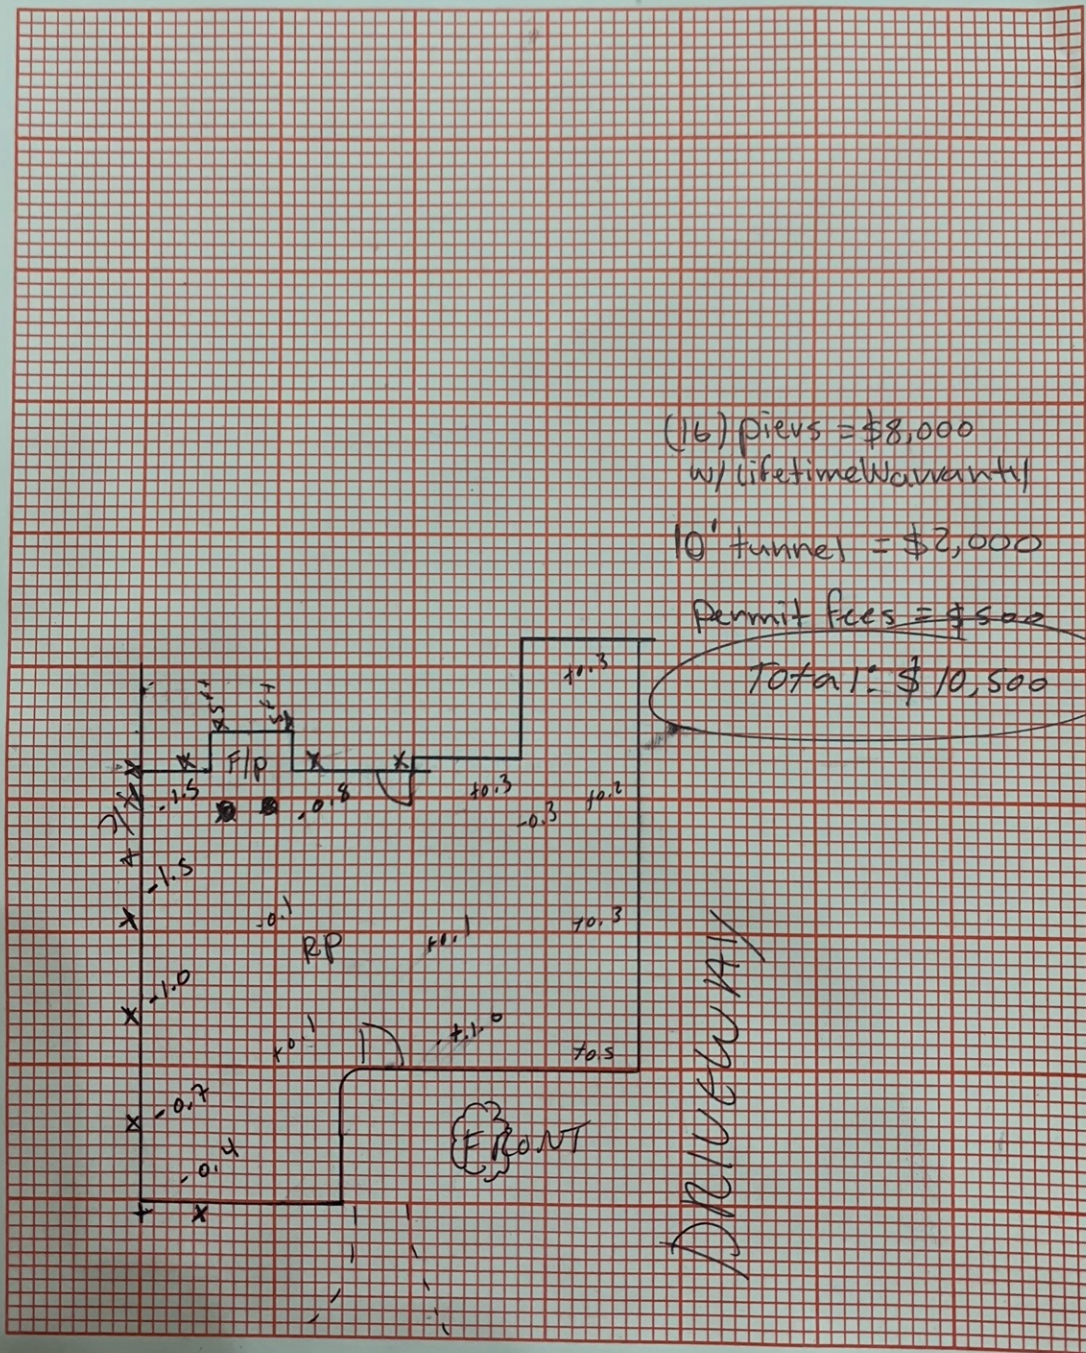 (16) piers = $8,000
w/ Lifetime Warranty
10' tunnel = $2,000
Permit fees = $500
Total: $10,500
+0.3
F/P
-1.5
-0.8
+0.3
+0.2
-0.3
-1.5
-0.1
RP
+0.1
+0.3
-1.0
+0.1
+1.0
+0.5
-0.7
-0.4
FRONT
DRIVEWAY